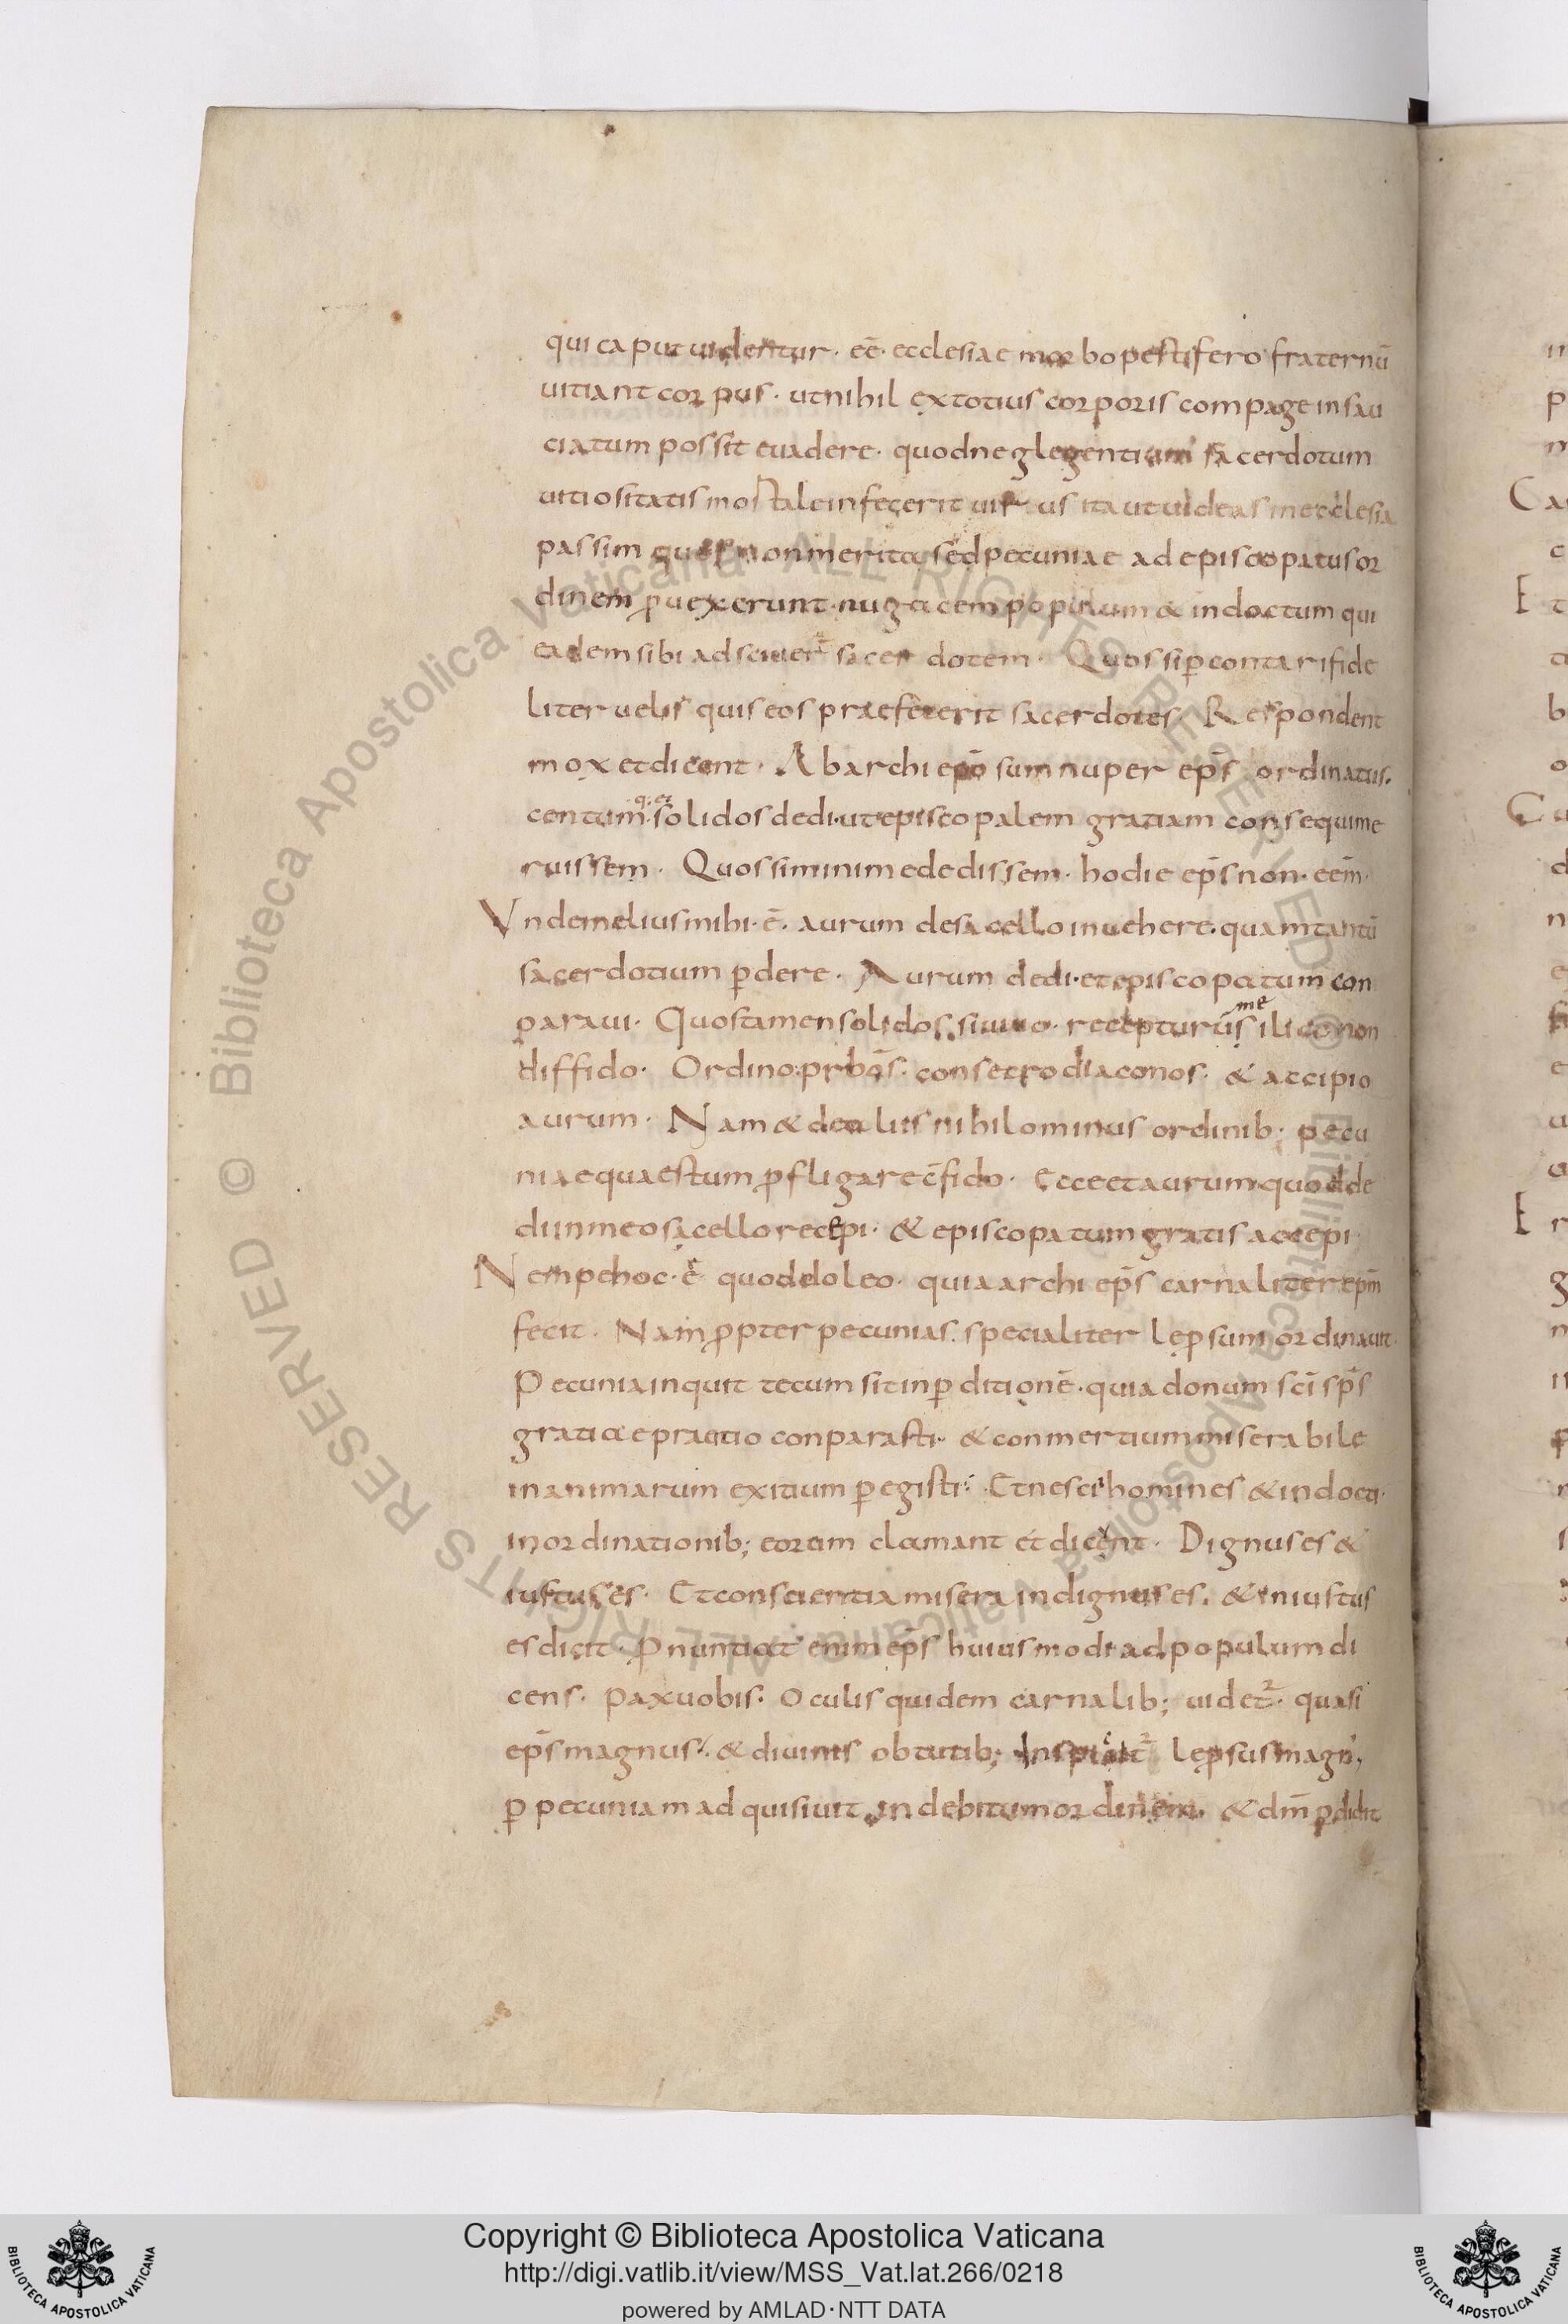 qui caput uidentur · eē · ecclesiae morbo pestifero fraternū
uitiant corpus · ut nihil ex totius corporis compage insau
ciatum possit euadere · quod neglegentium sacerdotum
uitiositatis mortale infecerit uirus ita ut uideas in ecclesia
passim quos non merita sed pecuniae ad episcopatus or
dinem ꝓuexerunt · nugacem populum & indoctum qui
eadem sibi adsciuer̄ sacerdotem · Quos si ꝑcontari fide
liter uelis quis eos praefecerit sacerdotes · Respondent
mox et dicent · Ab archiepō sum nuper ep̄s ordinatus ·
centum q; ei solidos dedi · ut episcopalem gratiam consequi me
ruissem · Quos si minime dedissem · hodie ep̄s non · eēm ·
Vnde melius mihi · ē · aurum de sacello inuehere · quam tantū
sacerdotium ꝑdere · Aurum dedi · et episcopatum con
paraui · Quos tamen solidos si uiuo · recepturus me ilico non
diffido · Ordino prb̄os · consecro diaconos · & accipio
aurum · Nam & de aliis nihilominus ordinib; pecu
niae quaestum ꝓfligare c̄fido · Ecce et aurum quod de
di in meo sacello recepi · & episcopatum gratis accepi ·
Nempe hoc · ē quod doleo · quia archiep̄s carnaliter ep̄m
fecit · Nam ꝓpter pecunias specialiter leprosum ordinauit ·
Pecunia inquit tecum sit in ꝑditionē · quia donum sc̄i sp̄s
gratiae praetio conparasti · & conmertium miserabile
in animarum exitium ꝑegisti · Et nescii homines & indocti ·
in ordinationib; eorum clamant et dicent · Dignus es &
iustus es · Et conscientia misera indignus es · & iniustus
es dicit · Ꝓnuntiat enim ep̄s huiusmodi ad populum di
cens · Pax uobis · Oculis quidem carnalib; uidet̄ · quasi
ep̄s magnus · & diuinis obtutib; leprosus magn;
ꝑ pecuniam adquisiuit indebitum ordinem · & dm̄ ꝑdidit
Copyright © Biblioteca Apostolica Vaticana
http://digi.vatlib.it/view/MSS_Vat.lat.266/0218
powered by AMLAD·NTT DATA